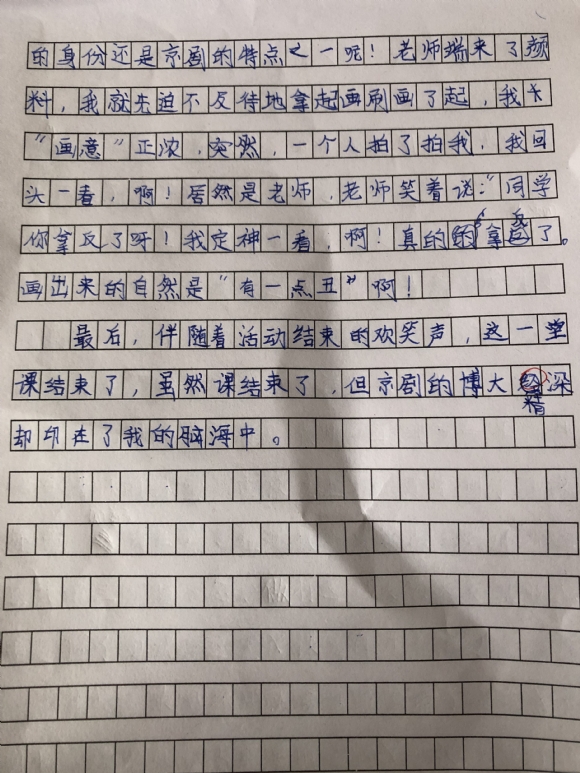 的身份还是京剧的特点之一呢！老师端来了颜
料，我就先迫不及待地拿起画刷画了起，我大
“画意”正浓，突然，一个人拍了拍我，我回
头一看，啊！居然是老师，老师笑着说：“同学
你拿反了呀！我定神一看，啊！真的拿反了。
画出来的自然是“有一点丑”啊！
最后，伴随着活动结束的欢笑声，这一堂
课结束了，虽然课结束了，但京剧的博大精深
却印在了我的脑海中。